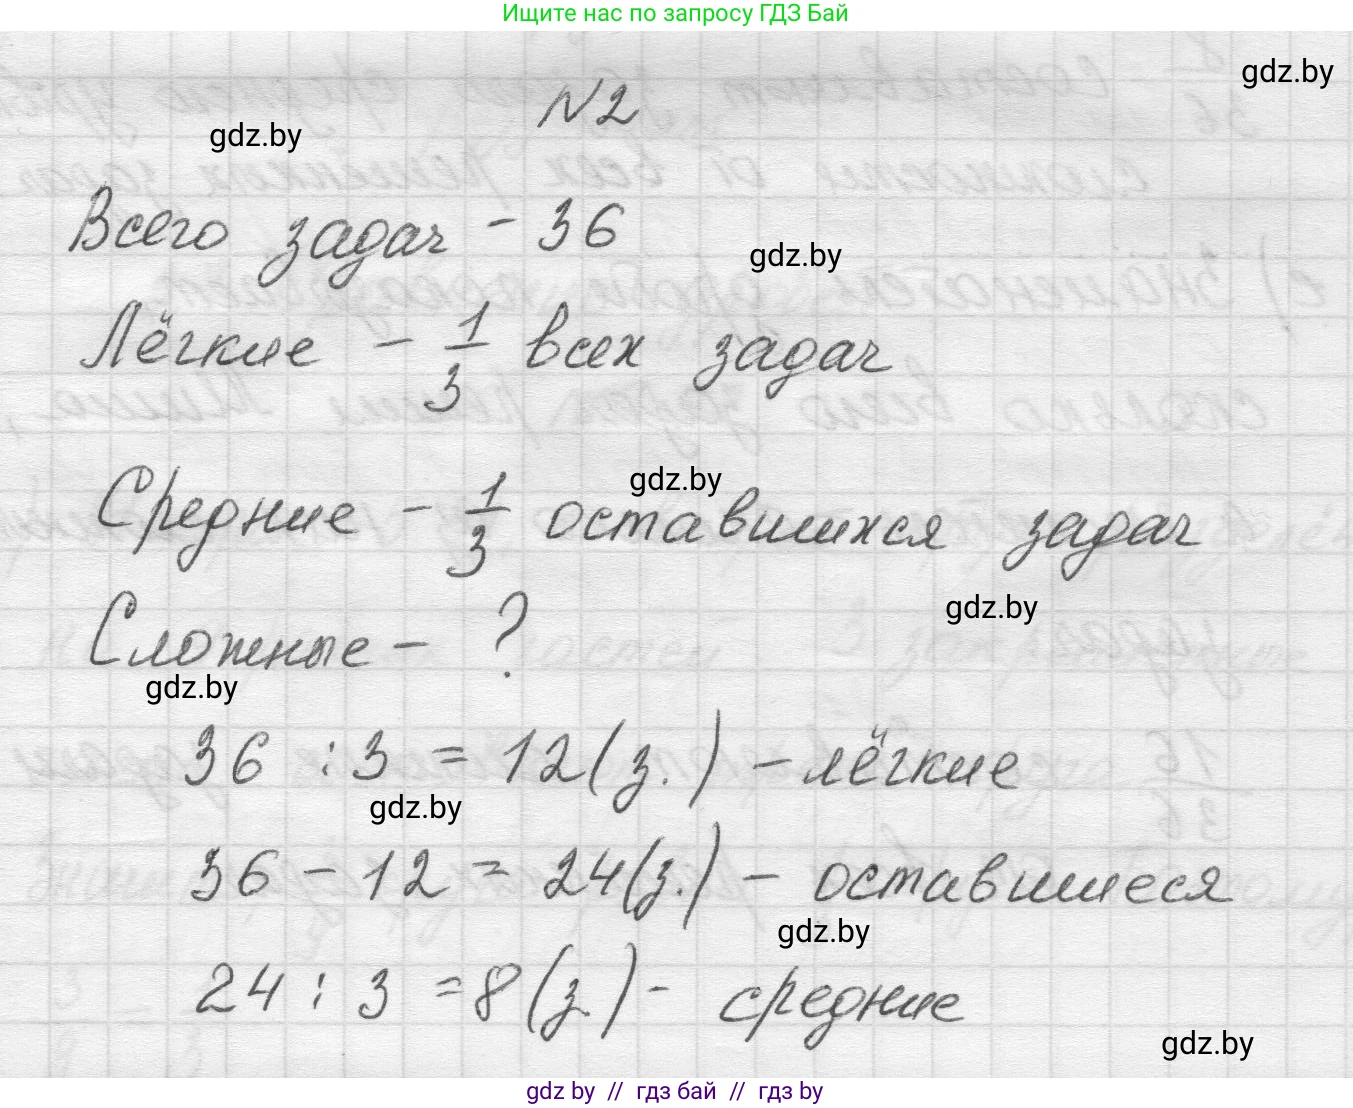 Ищите нас по запросу ГДЗ Бай
gdz.by
N2
gdz.by
Всего задач - 36
gdz.by
Лёгкие - 1/3 всех задач
gdz.by
Средние - 1/3 оставшихся задач
gdz.by
Сложные - ?
gdz.by
36 : 3 = 12 (з.) - лёгкие
gdz.by
36 - 12 = 24 (з.) - оставшиеся
gdz.by
24 : 3 = 8 (з.) - средние
gdz.by
gdz by // гдз бай // гдз by